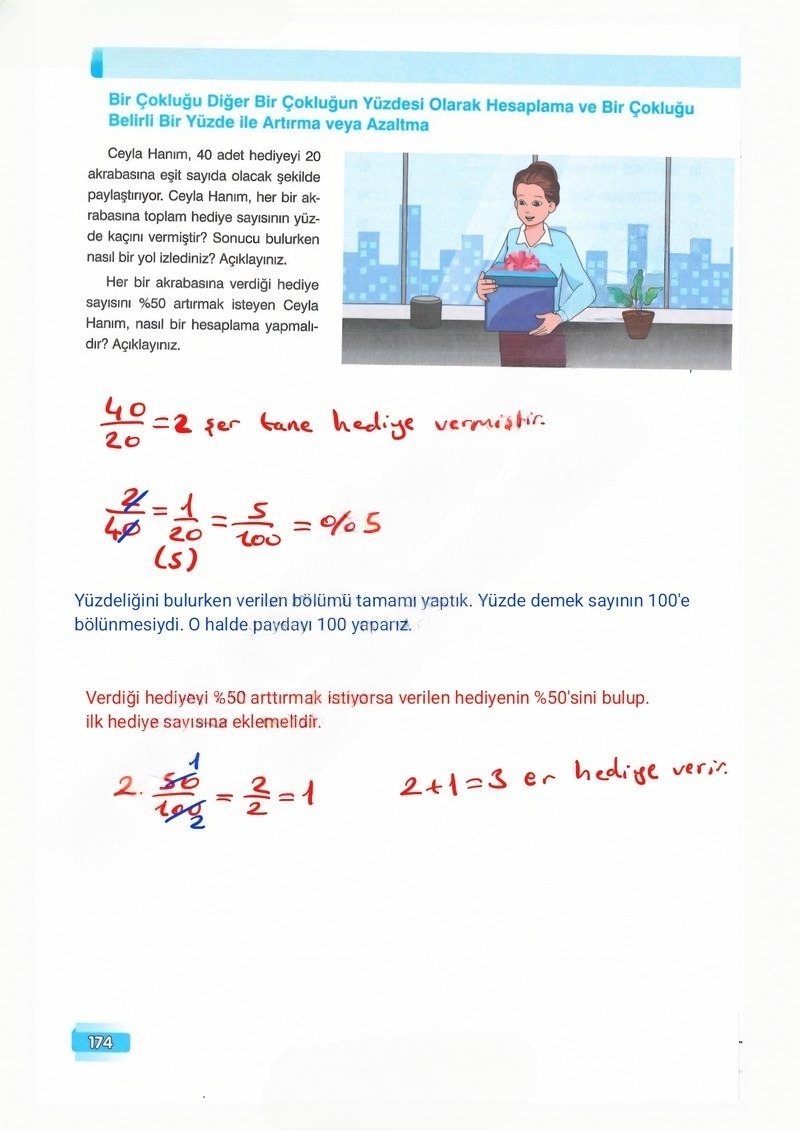 Bir Çokluğu Diğer Bir Çokluğun Yüzdesi Olarak Hesaplama ve Bir Çokluğu
Belirli Bir Yüzde ile Artırma veya Azaltma
Ceyla Hanım, 40 adet hediyeyi 20
akrabasına eşit sayıda olacak şekilde
paylaştırıyor. Ceyla Hanım, her bir ak-
rabasına toplam hediye sayısının yüz-
de kaçını vermiştir? Sonucu bulurken
nasıl bir yol izlediniz? Açıklayınız.
Her bir akrabasına verdiği hediye
sayısını %50 artırmak isteyen Ceyla
Hanım, nasıl bir hesaplama yapmalı-
dır? Açıklayınız.
40/20 = 2 şer tane hediye vermiştir.
2/40 = 1/20 = 5/100 = %5
(5)
Yüzdeliğini bulurken verilen bölümü tamamı yaptık. Yüzde demek sayının 100'e
bölünmesiydi. O halde paydayı 100 yaparız.
Verdiği hediyeyi %50 arttırmak istiyorsa verilen hediyenin %50'sini bulup.
ilk hediye sayısına eklemelidir.
1
2. 50/100 = 2/2 = 1 2+1=3 er hediye verir.
2
174